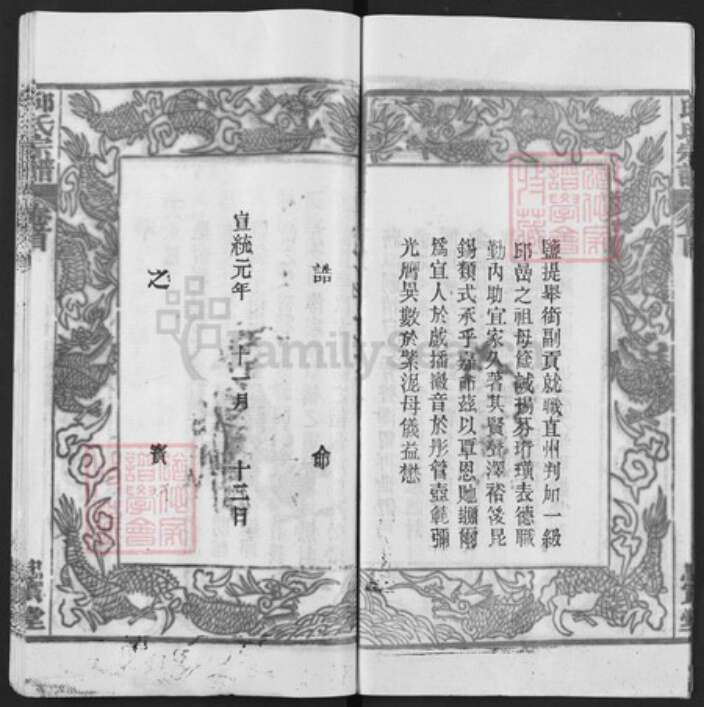 鹽提舉銜副貢就職直州判加一級
邱嵒之祖母箴誡揚芬珩璜表德職
勤內助宜家久著其賢聲澤裕後昆
錫類式承乎嘉命茲以覃恩貤贈爾
為宜人於戲播徽音於彤管壼範彌
光膺異數於紫泥母儀益懋
誥命
宣統元年 十一月 十三日
之寶
邱氏宗譜
卷首
FamilySearch